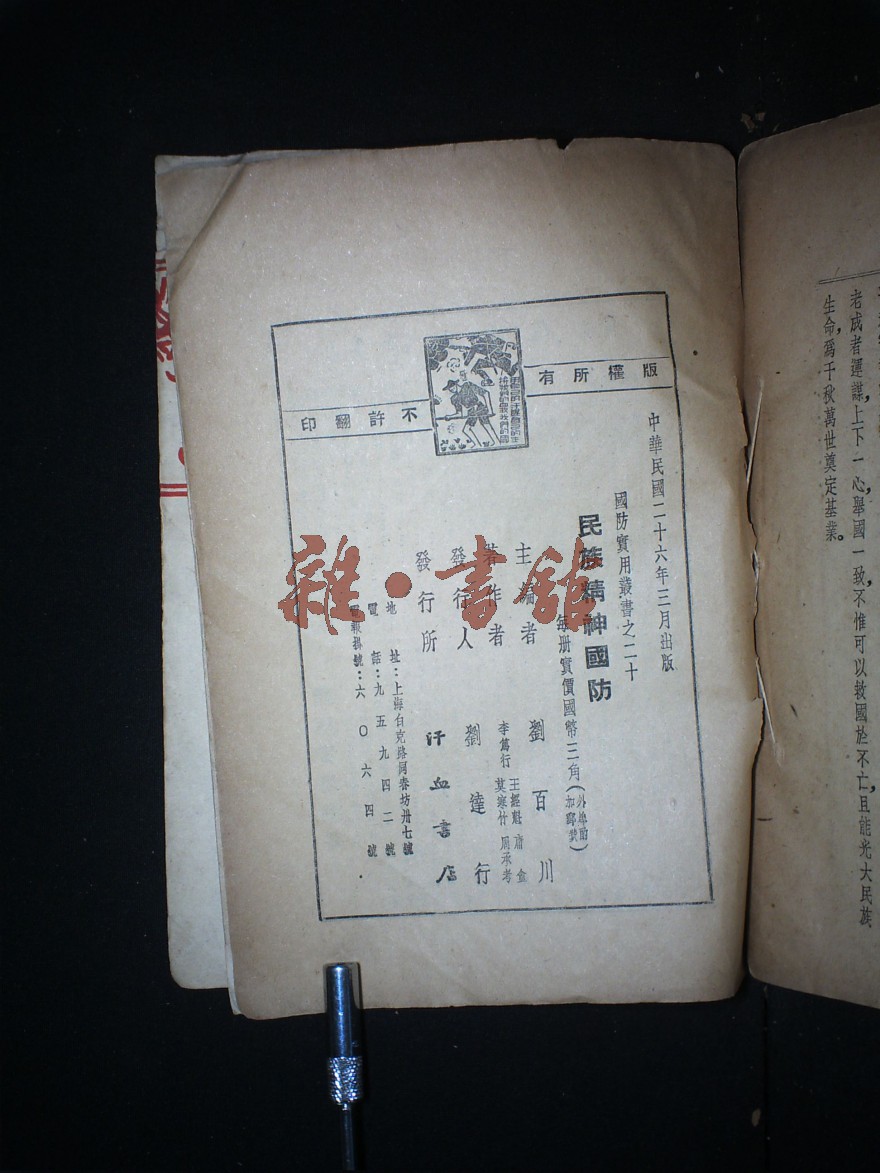 老成者運謀，上下一心，舉國一致，不惟可以救國於不亡，且能光大民族
生命，爲千秋萬世奠定基業。
版權所有
不許翻印
中華民國二十六年三月出版
國防實用叢書之二十
民族精神國防
每册實價國幣三角（外埠酌加郵費）
主編者 劉百川
著作者 李篤行 王經魁 莫寒竹 周承考
發行人 劉達行
發行所 汗血書店
地址：上海白克路同春坊卅七號
電話：九五九四二號
電報掛號：六〇六四號
雜·書館